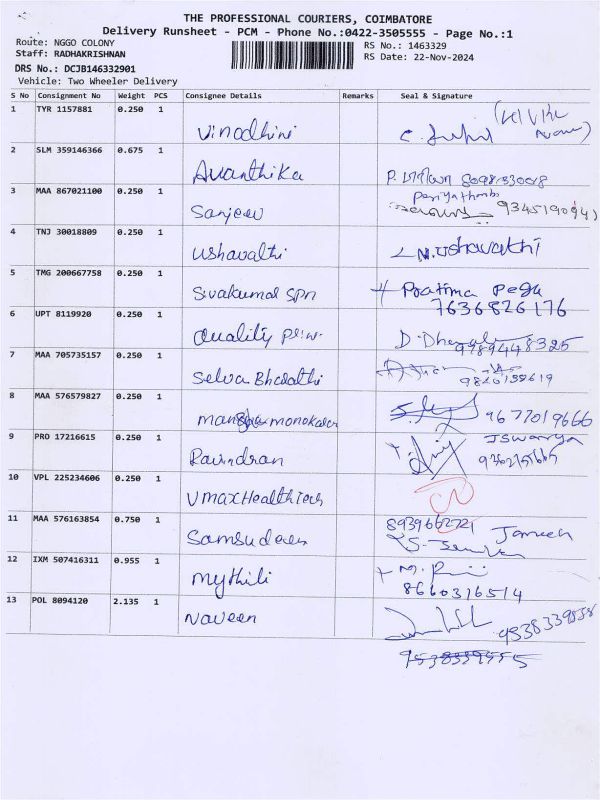 THE PROFESSIONAL COURIERS, COIMBATORE
Delivery Runsheet - PCM - Phone No.:0422-3505555 - Page No.:1
Route: NGGO COLONY
RS No.: 1463329
Staff: RADHAKRISHNAN
RS Date: 22-Nov-2024
DRS No.: DCJB146332901
Vehicle: Two Wheeler Delivery
S No Consignment No Weight PCS Consignee Details Remarks Seal & Signature
1 TYR 1157881 0.250 1 Vinodhini
2 SLM 359146366 0.675 1 Avanthika
3 MAA 867021100 0.250 1 Sanjeev
4 TNJ 30018809 0.250 1 Ushavathi N.Ushavathi
5 TMG 200667758 0.250 1 Sivakumar SPN Pratima Pegu
7636826176
6 UPT 8119920 0.250 1 Quality
9789448325
7 MAA 705735157 0.250 1 Selva Bharathi
8 MAA 576579827 0.250 1 9677019666
9 PRO 17216615 0.250 1 Ravindran
10 VPL 225234606 0.250 1 VmaxHealthTech
11 MAA 576163854 0.750 1 Samsudeen
12 IXM 507416311 0.955 1 Mythili
8660316514
13 POL 8094120 2.135 1 Naveen 9538339558